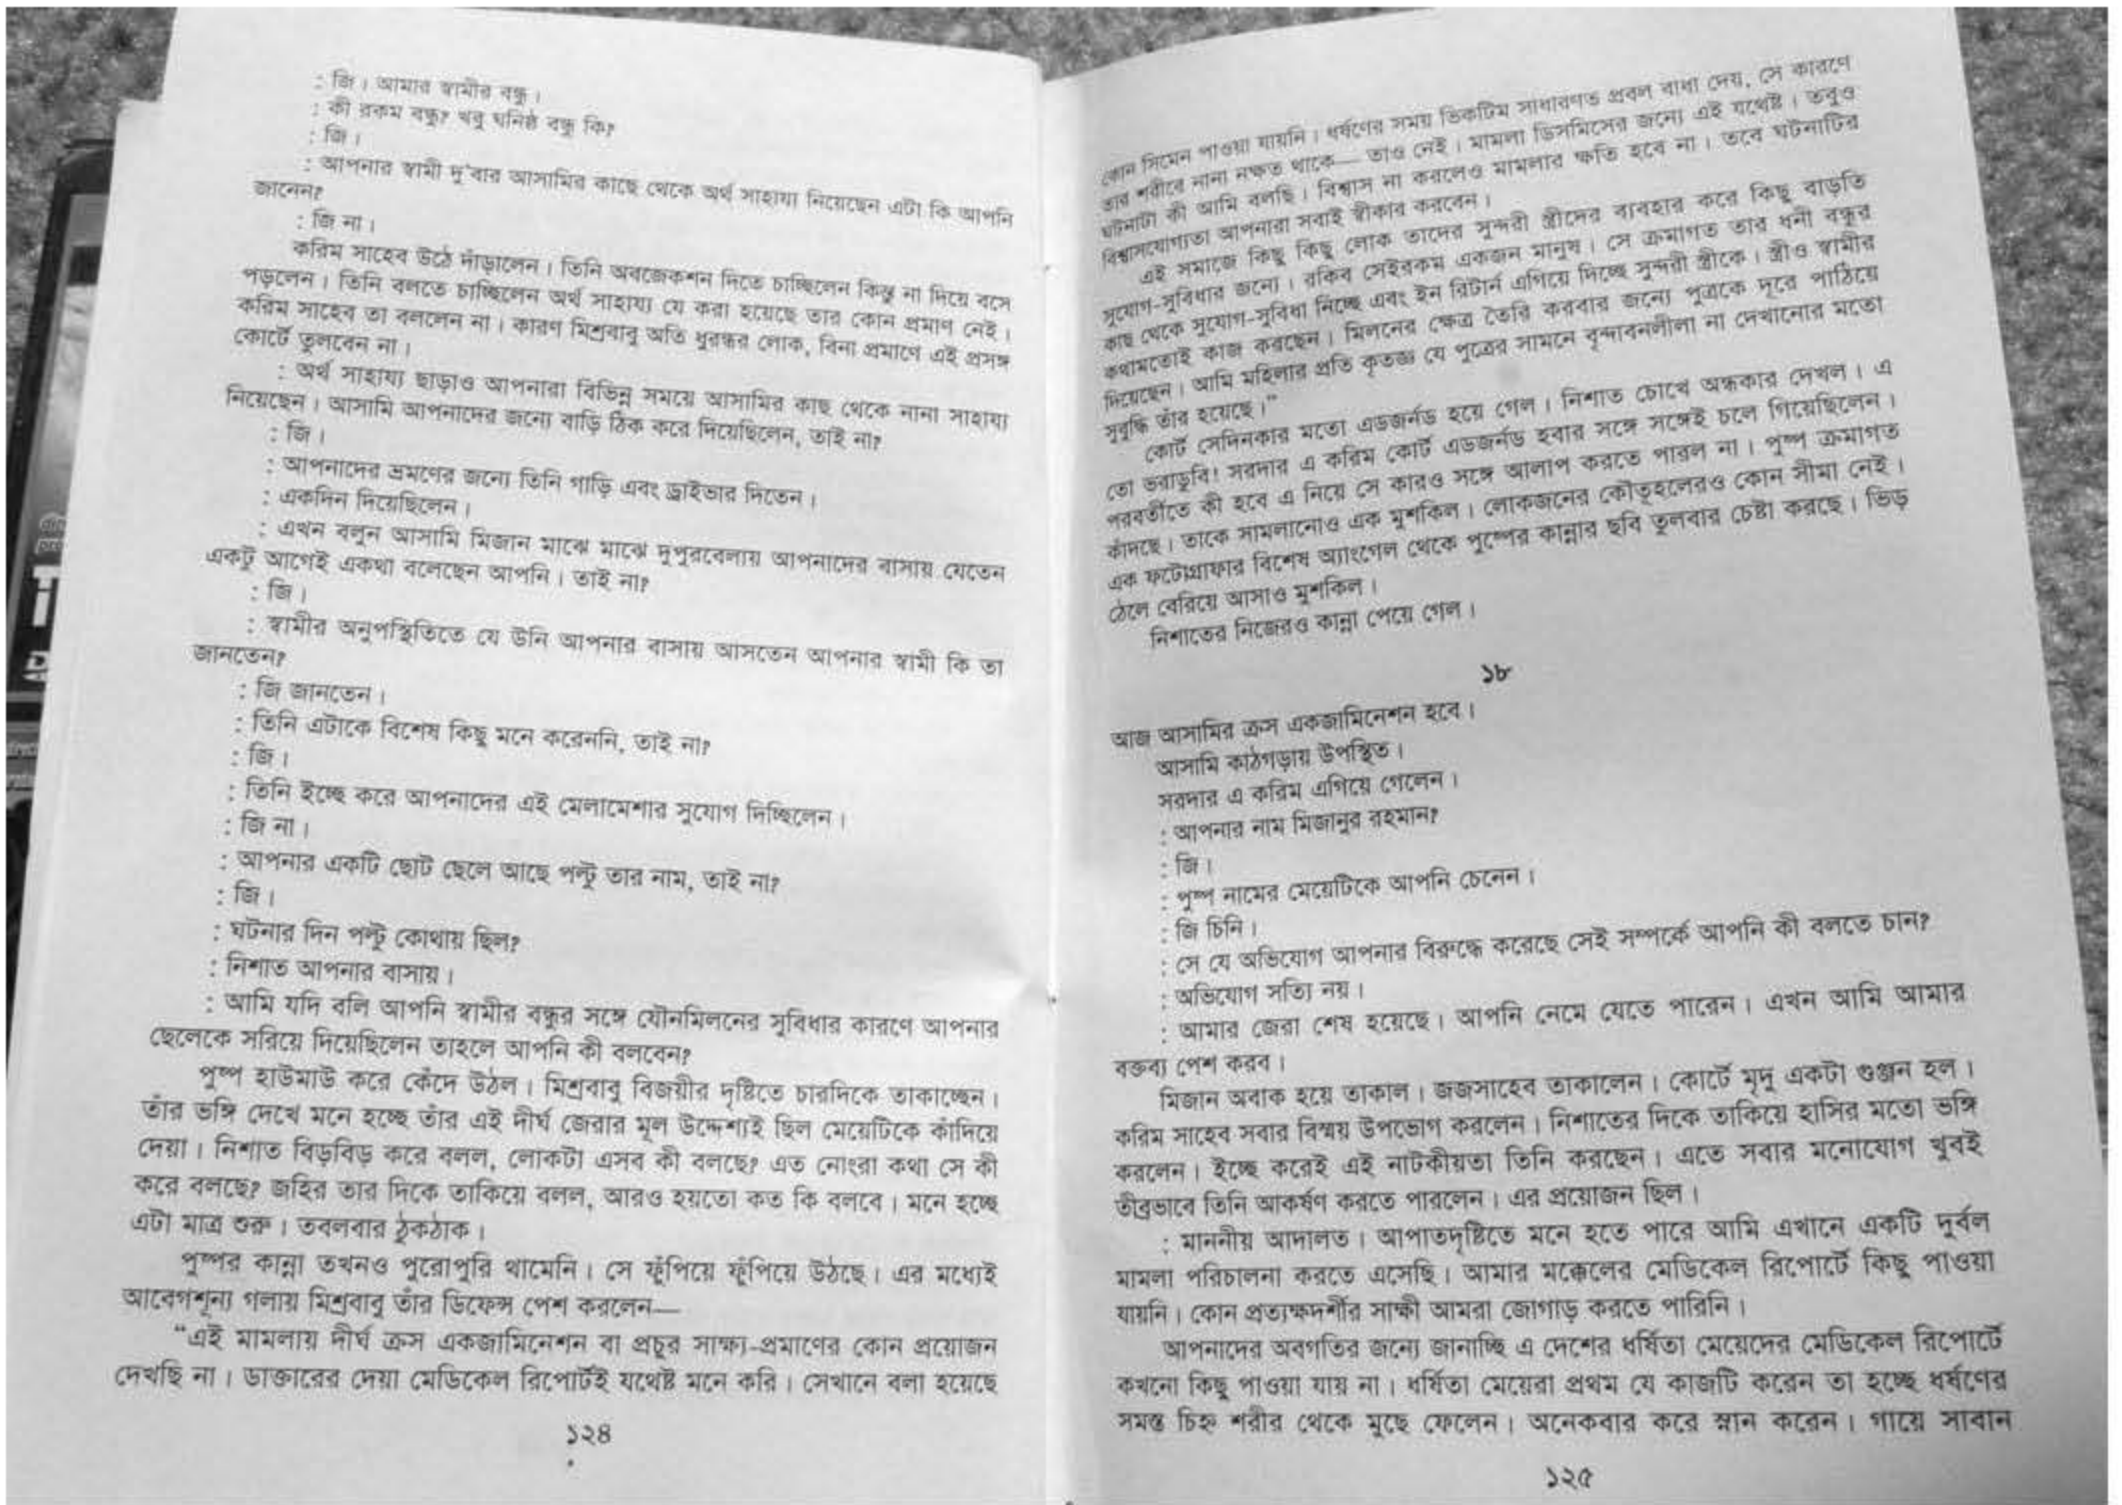 : জি। আমার স্বামীর বন্ধু।
: কী রকম বন্ধু? খবু ঘনিষ্ঠ বন্ধু কি?
: জি।
: আপনার স্বামী দু'বার আসামির কাছে থেকে অর্থ সাহায্য নিয়েছেন এটা কি আপনি
জানেন?
: জি না।
করিম সাহেব উঠে দাঁড়ালেন। তিনি অবজেকশন দিতে চাচ্ছিলেন কিন্তু না দিয়ে বসে
পড়লেন। তিনি বলতে চাচ্ছিলেন অর্থ সাহায্য যে করা হয়েছে তার কোন প্রমাণ নেই।
করিম সাহেব তা বললেন না। কারণ মিশ্রবাবু অতি ধুরন্ধর লোক, বিনা প্রমাণে এই প্রসঙ্গ
কোর্টে তুলবেন না।
: অর্থ সাহায্য ছাড়াও আপনারা বিভিন্ন সময়ে আসামির কাছ থেকে নানা সাহায্য
নিয়েছেন। আসামি আপনাদের জন্যে বাড়ি ঠিক করে দিয়েছিলেন, তাই না?
: জি।
: আপনাদের ভ্রমণের জন্যে তিনি গাড়ি এবং ড্রাইভার দিতেন।
: একদিন দিয়েছিলেন।
: এখন বলুন আসামি মিজান মাঝে মাঝে দুপুরবেলায় আপনাদের বাসায় যেতেন
একটু আগেই একথা বলেছেন আপনি। তাই না?
: জি।
: স্বামীর অনুপস্থিতিতে যে উনি আপনার বাসায় আসতেন আপনার স্বামী কি তা
জানতেন?
: জি জানতেন।
: তিনি এটাকে বিশেষ কিছু মনে করেননি, তাই না?
: জি।
: তিনি ইচ্ছে করে আপনাদের এই মেলামেশার সুযোগ দিচ্ছিলেন।
: জি না।
: আপনার একটি ছোট ছেলে আছে পল্টু তার নাম, তাই না?
: জি।
: ঘটনার দিন পল্টু কোথায় ছিল?
: নিশাত আপনার বাসায়।
: আমি যদি বলি আপনি স্বামীর বন্ধুর সঙ্গে যৌনমিলনের সুবিধার কারণে আপনার
ছেলেকে সরিয়ে দিয়েছিলেন তাহলে আপনি কী বলবেন?
পুষ্প হাউমাউ করে কেঁদে উঠল। মিশ্রবাবু বিজয়ীর দৃষ্টিতে চারদিকে তাকাচ্ছেন।
তাঁর ভঙ্গি দেখে মনে হচ্ছে তাঁর এই দীর্ঘ জেরার মূল উদ্দেশ্যই ছিল মেয়েটিকে কাঁদিয়ে
দেয়া। নিশাত বিড়বিড় করে বলল, লোকটা এসব কী বলছে? এত নোংরা কথা সে কী
করে বলছে? জহির তার দিকে তাকিয়ে বলল, আরও হয়তো কত কি বলবে। মনে হচ্ছে
এটা মাত্র শুরু। তবলবার ঠুকঠাক।
পুষ্পর কান্না তখনও পুরোপুরি থামেনি। সে ফুঁপিয়ে ফুঁপিয়ে উঠছে। এর মধ্যেই
আবেগশূন্য গলায় মিশ্রবাবু তাঁর ডিফেন্স পেশ করলেন—
“এই মামলায় দীর্ঘ ক্রস একজামিনেশন বা প্রচুর সাক্ষ্য-প্রমাণের কোন প্রয়োজন
দেখছি না। ডাক্তারের দেয়া মেডিকেল রিপোর্টই যথেষ্ট মনে করি। সেখানে বলা হয়েছে
১২৪
কোন সিমেন পাওয়া যায়নি। ধর্ষণের সময় ভিকটিম সাধারণত প্রবল বাধা দেয়, সে কারণে
তার শরীরে নানা নক্ষত থাকে— তাও নেই। মামলা ডিসমিসের জন্যে এই যথেষ্ট। তবুও
ঘটনাটা কী আমি বলছি। বিশ্বাস না করলেও মামলার ক্ষতি হবে না। তবে ঘটনাটির
বিশ্বাসযোগ্যতা আপনারা সবাই স্বীকার করবেন।
এই সমাজে কিছু কিছু লোক তাদের সুন্দরী স্ত্রীদের ব্যবহার করে কিছু বাড়তি
সুযোগ-সুবিধার জন্যে। রকিব সেইরকম একজন মানুষ। সে ক্রমাগত তার ধনী বন্ধুর
কাছ থেকে সুযোগ-সুবিধা নিচ্ছে এবং ইন রিটার্ন এগিয়ে দিচ্ছে সুন্দরী স্ত্রীকে। স্ত্রীও স্বামীর
কথামতোই কাজ করছেন। মিলনের ক্ষেত্র তৈরি করবার জন্যে পুত্রকে দূরে পাঠিয়ে
দিয়েছেন। আমি মহিলার প্রতি কৃতজ্ঞ যে পুত্রের সামনে বৃন্দাবনলীলা না দেখানোর মতো
সুবুদ্ধি তাঁর হয়েছে।”
কোর্ট সেদিনকার মতো এডজর্নড হয়ে গেল। নিশাত চোখে অন্ধকার দেখল। এ
তো ভরাডুবি! সরদার এ করিম কোর্ট এডজর্নড হবার সঙ্গে সঙ্গেই চলে গিয়েছিলেন।
পরবর্তীতে কী হবে এ নিয়ে সে কারও সঙ্গে আলাপ করতে পারল না। পুষ্প ক্রমাগত
কাঁদছে। তাকে সামলানোও এক মুশকিল। লোকজনের কৌতূহলেরও কোন সীমা নেই।
এক ফটোগ্রাফার বিশেষ অ্যাংগেল থেকে পুষ্পের কান্নার ছবি তুলবার চেষ্টা করছে। ভিড়
ঠেলে বেরিয়ে আসাও মুশকিল।
নিশাতের নিজেরও কান্না পেয়ে গেল।
১৮
আজ আসামির ক্রস একজামিনেশন হবে।
আসামি কাঠগড়ায় উপস্থিত।
সরদার এ করিম এগিয়ে গেলেন।
: আপনার নাম মিজানুর রহমান?
: জি।
: পুষ্প নামের মেয়েটিকে আপনি চেনেন।
: জি চিনি।
: সে যে অভিযোগ আপনার বিরুদ্ধে করেছে সেই সম্পর্কে আপনি কী বলতে চান?
: অভিযোগ সত্যি নয়।
: আমার জেরা শেষ হয়েছে। আপনি নেমে যেতে পারেন। এখন আমি আমার
বক্তব্য পেশ করব।
মিজান অবাক হয়ে তাকাল। জজসাহেব তাকালেন। কোর্টে মৃদু একটা গুঞ্জন হল।
করিম সাহেব সবার বিস্ময় উপভোগ করলেন। নিশাতের দিকে তাকিয়ে হাসির মতো ভঙ্গি
করলেন। ইচ্ছে করেই এই নাটকীয়তা তিনি করছেন। এতে সবার মনোযোগ খুবই
তীব্রভাবে তিনি আকর্ষণ করতে পারলেন। এর প্রয়োজন ছিল।
: মাননীয় আদালত। আপাতদৃষ্টিতে মনে হতে পারে আমি এখানে একটি দুর্বল
মামলা পরিচালনা করতে এসেছি। আমার মক্কেলের মেডিকেল রিপোর্টে কিছু পাওয়া
যায়নি। কোন প্রত্যক্ষদর্শীর সাক্ষী আমরা জোগাড় করতে পারিনি।
আপনাদের অবগতির জন্যে জানাচ্ছি এ দেশের ধর্ষিতা মেয়েদের মেডিকেল রিপোর্টে
কখনো কিছু পাওয়া যায় না। ধর্ষিতা মেয়েরা প্রথম যে কাজটি করেন তা হচ্ছে ধর্ষণের
সমস্ত চিহ্ন শরীর থেকে মুছে ফেলেন। অনেকবার করে স্নান করেন। গায়ে সাবান
১২৫